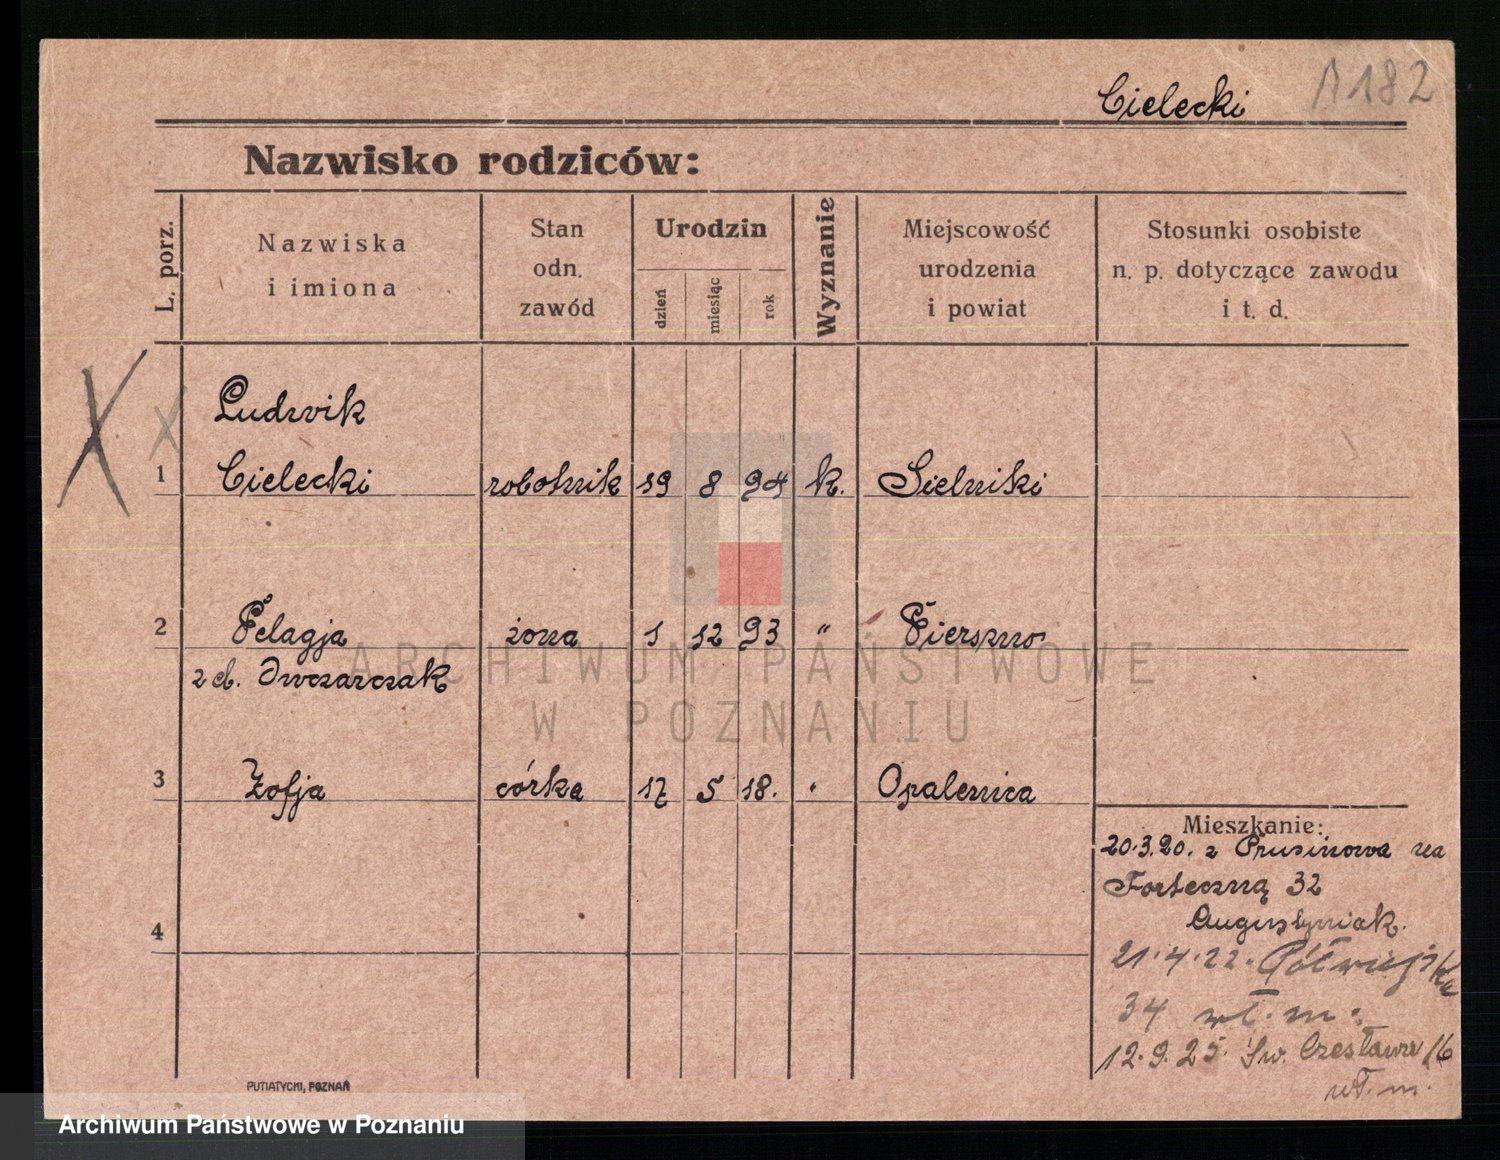 Cielecki
182
Nazwisko rodziców:
L. porz.
Nazwiska
i imiona
Stan
odn.
zawód
Urodzin
dzień
miesiąc
rok
Wyznanie
Miejscowość
urodzenia
i powiat
Stosunki osobiste
n. p. dotyczące zawodu
i t. d.
X X
Ludwik
1 Cielecki robotnik 19 8 94 k. Sielniki
2 Pelagja żona 1 12 93 " Pierszno
z d. Owczarczak
3 Zofja córka 17 5 18. Opalenica
4
Mieszkanie:
20.3.20. z Prusinowa na
Forteczną 32
Augustyniak.
21.4.22. Półwiejska
34 wł. m.
12.9.25. Św. Czesława 16
wł. m.
PUTIATYCKI, POZNAŃ
ARCHIWUM PAŃSTWOWE
W POZNANIU
Archiwum Państwowe w Poznaniu